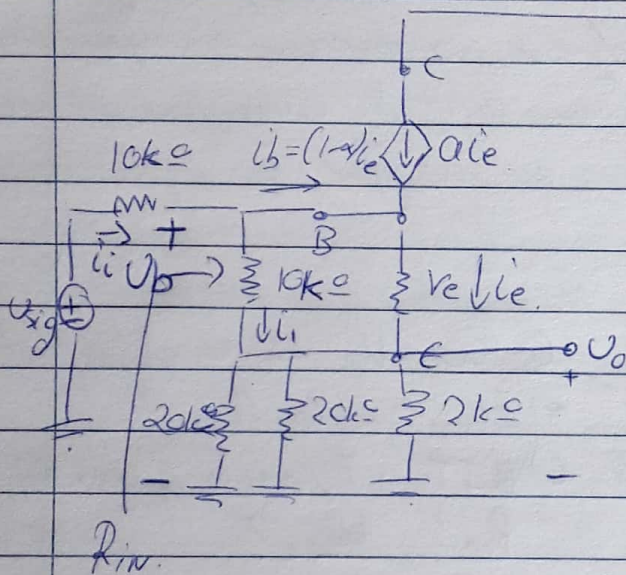 C
10kΩ ib=(1-α)ie αie
+
B
ii Ub 10kΩ re ie.
Usig +
i1
E Uo
+
20kΩ 20kΩ 2kΩ
- -
RIN.